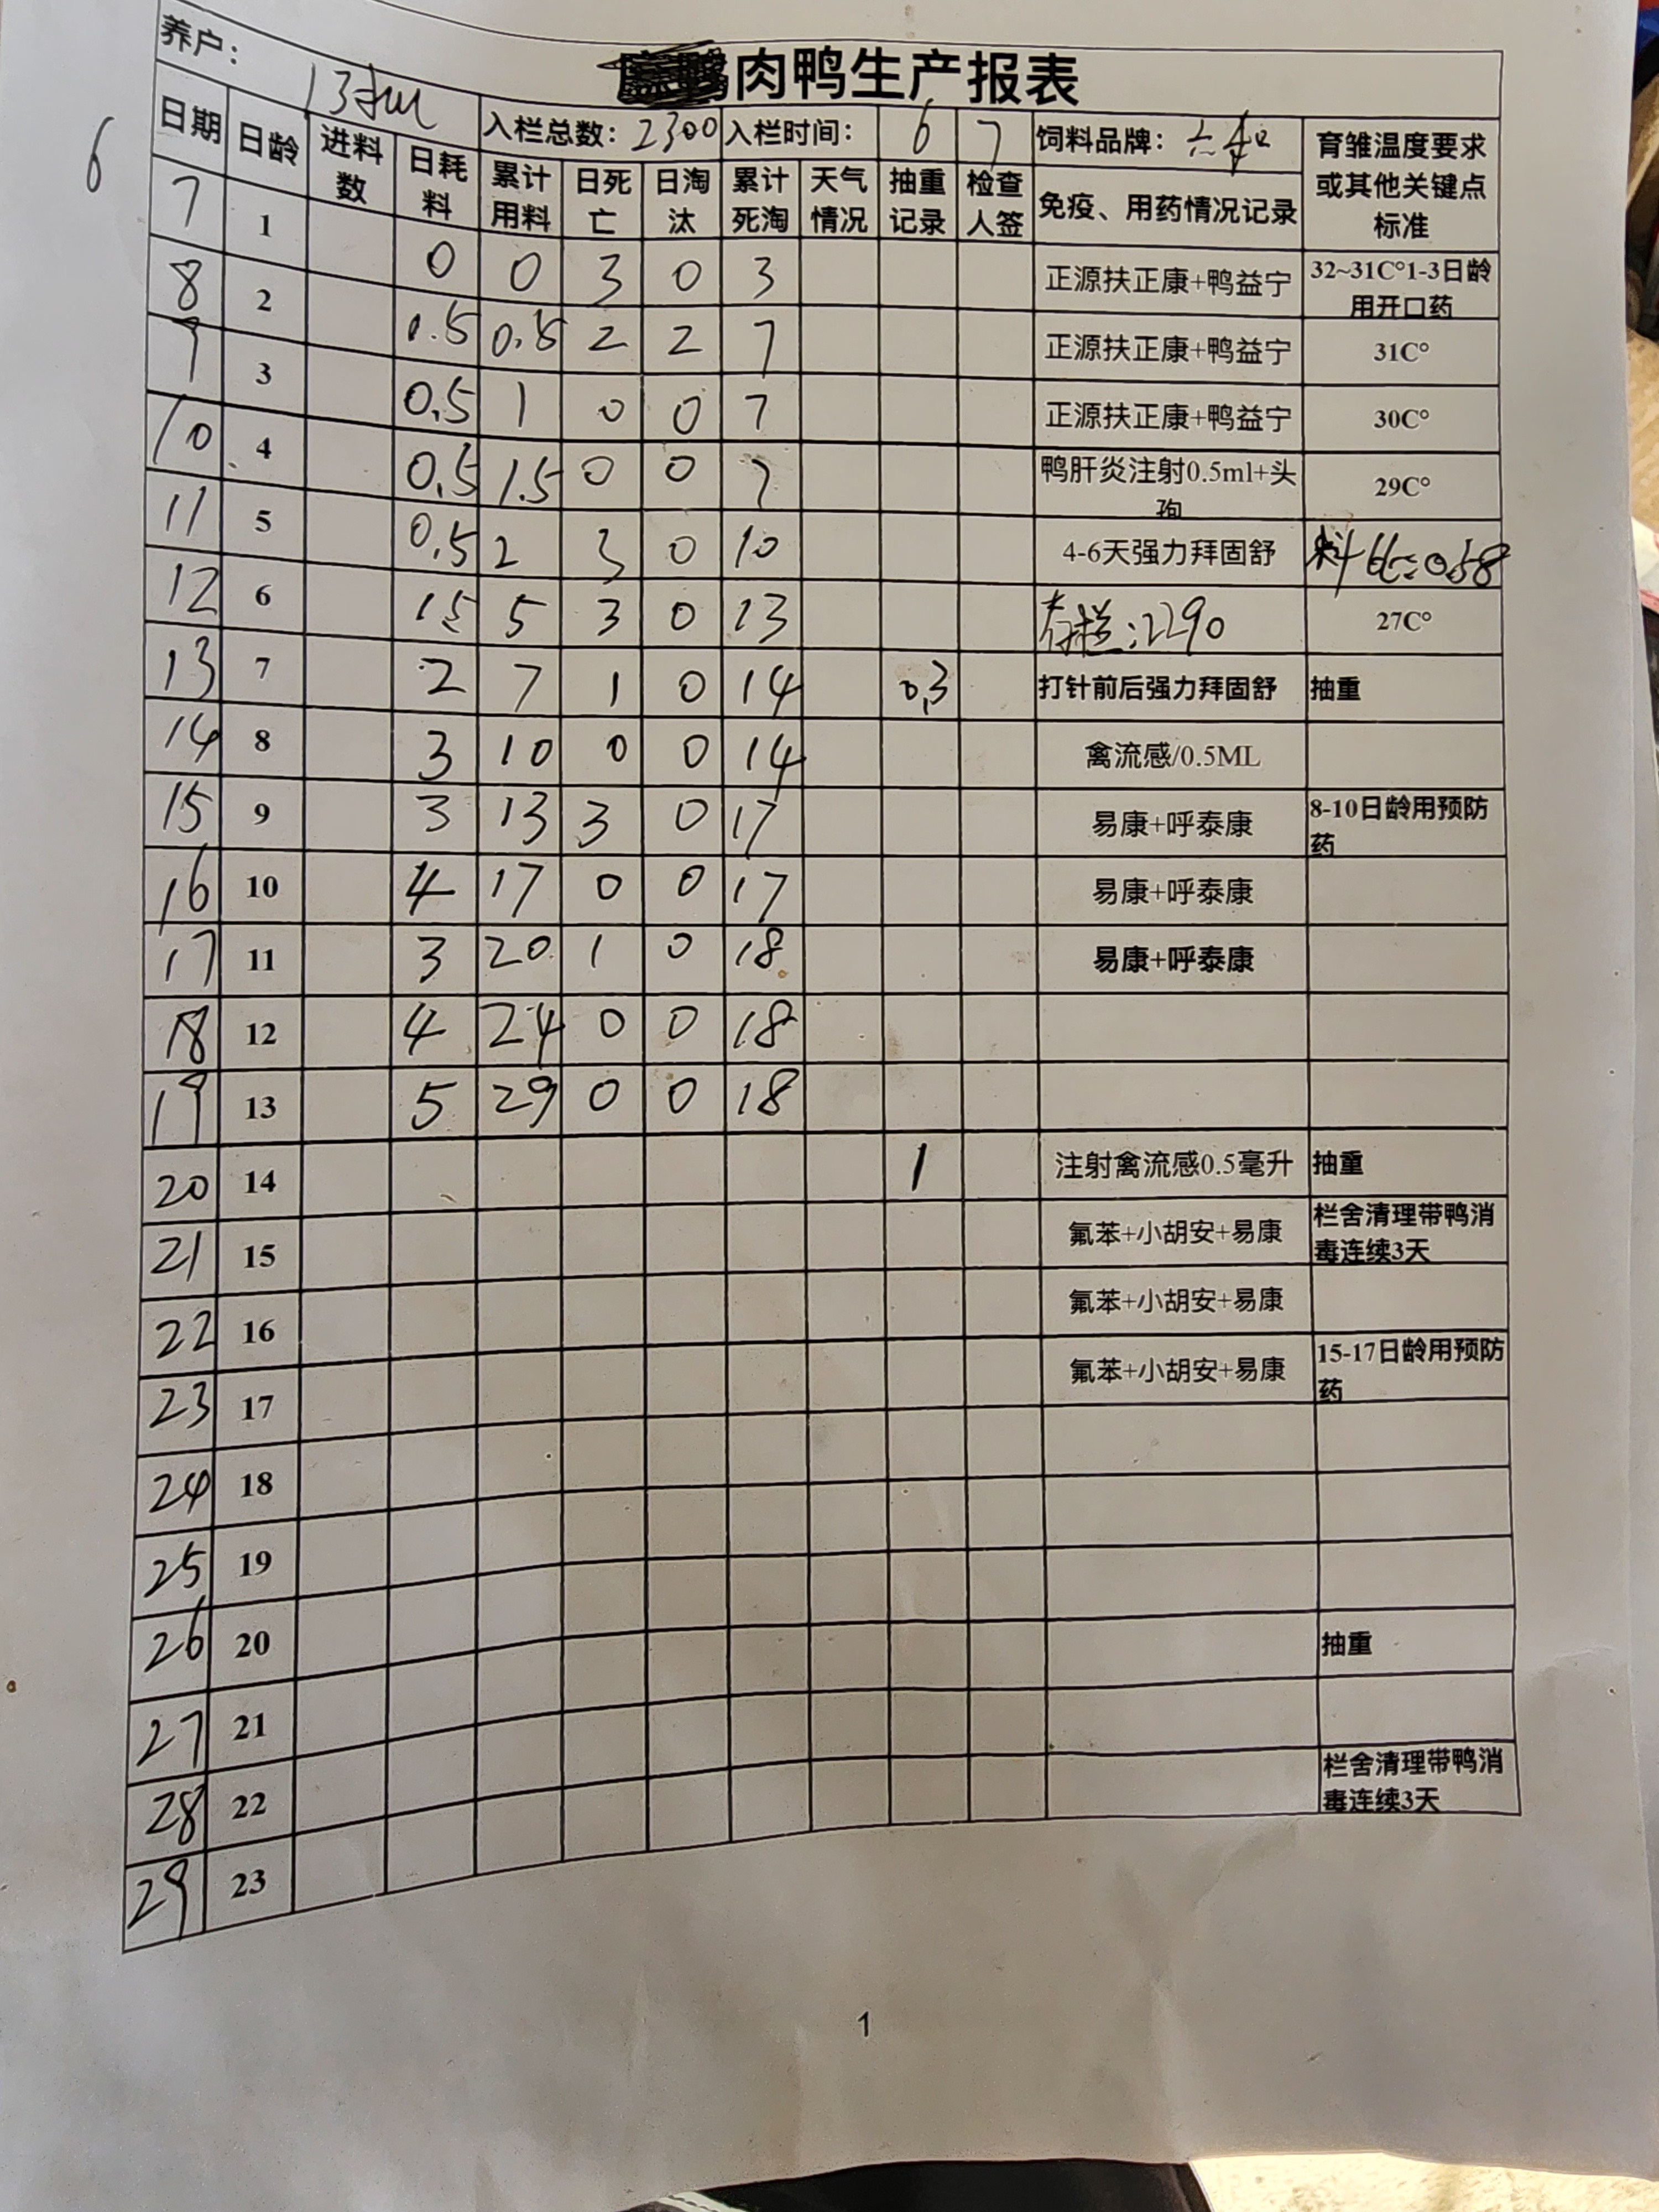 肉鸭生产报表
养户：
入栏总数：2300 入栏时间：6 7 饲料品牌：六和
6
日期 日龄 进料数 日耗料 累计用料 日死亡 日淘汰 累计死淘 天气情况 抽重记录 检查人签 免疫、用药情况记录 育雏温度要求或其他关键点标准
7 1 0 0 3 0 3 正源扶正康+鸭益宁 32~31C°1-3日龄用开口药
8 2 0.5 0.5 2 2 7 正源扶正康+鸭益宁 31C°
9 3 0.5 1 0 0 7 正源扶正康+鸭益宁 30C°
10 4 0.5 1.5 0 0 7 鸭肝炎注射0.5ml+头孢 29C°
11 5 0.5 2 3 0 10 4-6天强力拜固舒 料比:0.58
12 6 5 3 0 13 存栏:2290 27C°
13 7 2 7 1 0 14 0.3 打针前后强力拜固舒 抽重
14 8 3 10 0 0 14 禽流感/0.5ML
15 9 3 13 3 0 17 易康+呼泰康 8-10日龄用预防药
16 10 4 17 0 0 17 易康+呼泰康
17 11 3 20 1 0 18 易康+呼泰康
18 12 4 24 0 0 18
19 13 5 29 0 0 18
20 14 1 注射禽流感0.5毫升 抽重
21 15 氟苯+小胡安+易康 栏舍清理带鸭消毒连续3天
22 16 氟苯+小胡安+易康
23 17 氟苯+小胡安+易康 15-17日龄用预防药
24 18
25 19
26 20 抽重
27 21
28 22 栏舍清理带鸭消毒连续3天
29 23
1